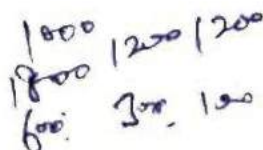 1000 1200 1200
1800
600. 300. 100